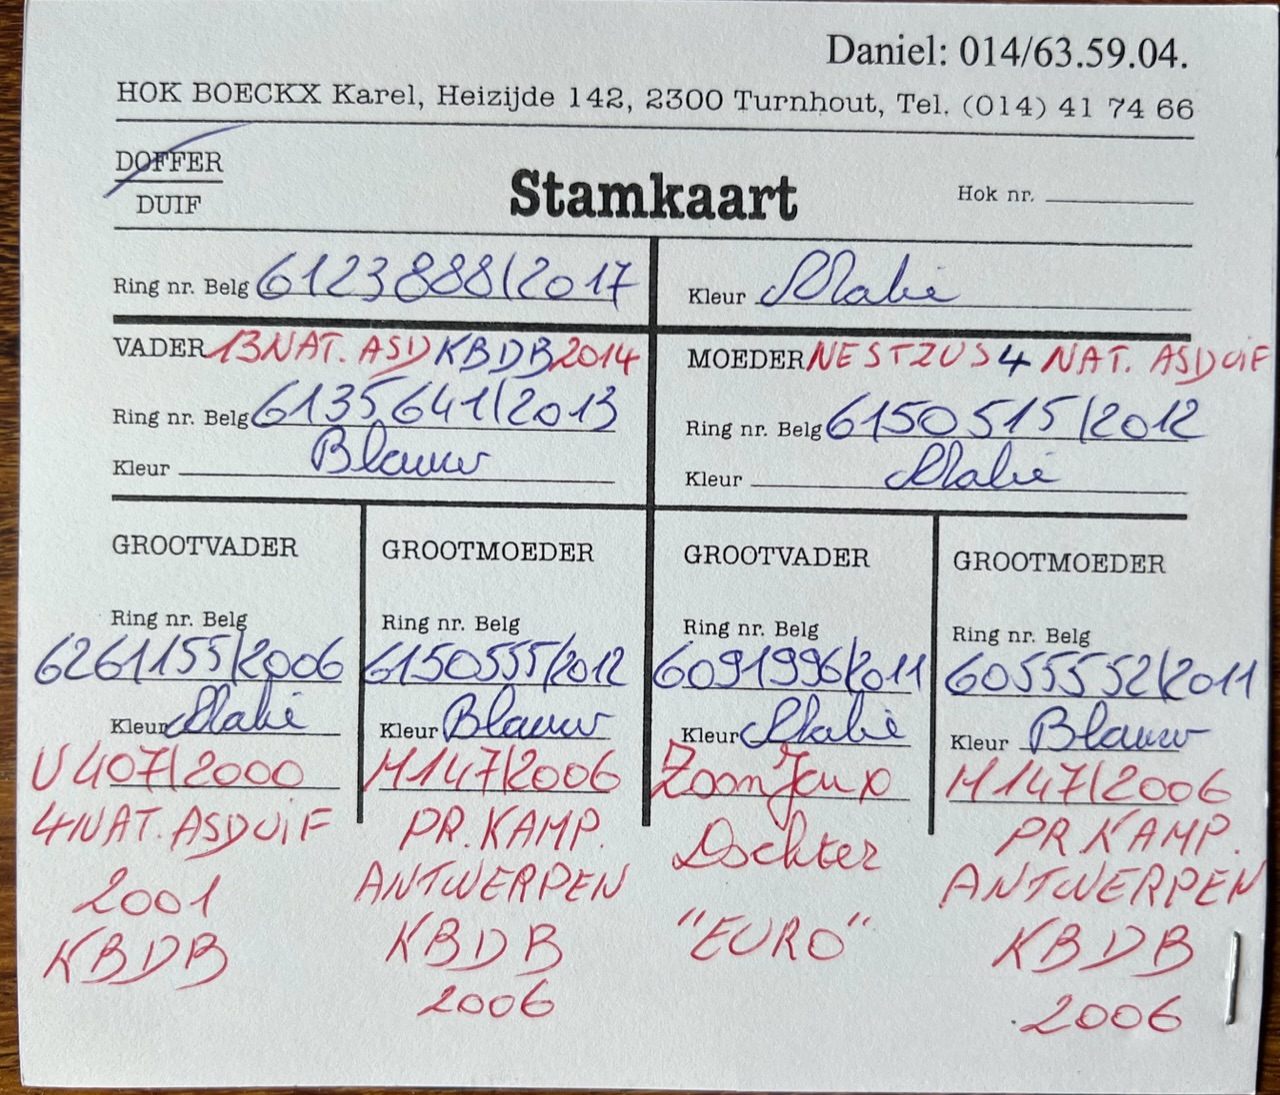 Daniel: 014/63.59.04.
HOK BOECKX Karel, Heizijde 142, 2300 Turnhout, Tel. (014) 41 74 66
DOFFER
DUIF
Stamkaart
Hok nr.
Ring nr. Belg 6123888/2017
Kleur Skalie
VADER 13 NAT. ASD KBDB 2014
Ring nr. Belg 6135641/2013
Kleur Blauw
MOEDER NESTZUS 4 NAT. ASDUIF
Ring nr. Belg 6150515/2012
Kleur Skalie
GROOTVADER
Ring nr. Belg
6261155/2006
Kleur Skalie
U407/2000
4 NAT. ASDUIF
2001
KBDB
GROOTMOEDER
Ring nr. Belg
6150555/2012
Kleur Blauw
H147/2006
PR. KAMP.
ANTWERPEN
KBDB
2006
GROOTVADER
Ring nr. Belg
6091996/2011
Kleur Skalie
Zoon X
Dochter
"EURO"
GROOTMOEDER
Ring nr. Belg
6055552/2011
Kleur Blauw
H147/2006
PR KAMP.
ANTWERPEN
KBDB
2006